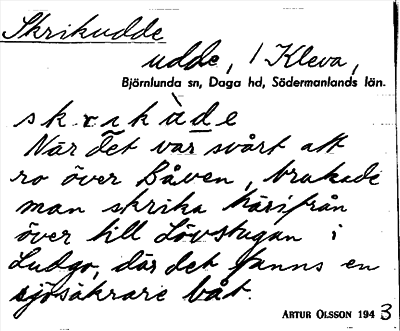 Skrikudde
udde, 1 Kleva,
Björnlunda sn, Daga hd, Södermanlands län.
skrikàde
När det var svårt att
ro över Båven, brukade
man skrika härifrån
över till Lövstugan i
Ludgo, där det fanns en
sjösäkrare båt.
ARTUR OLSSON 1943